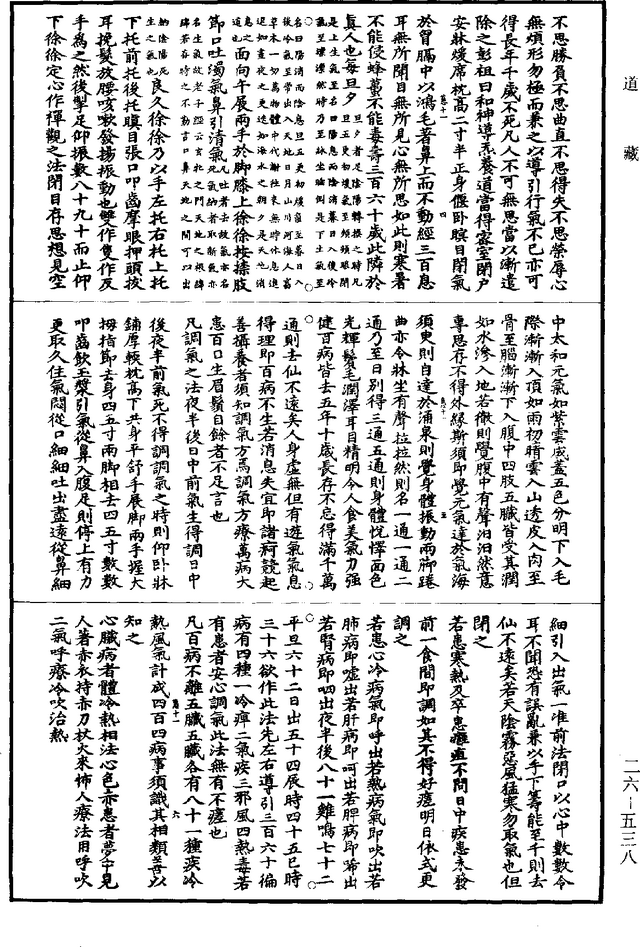 道藏
不思勝負不思曲直不思得失不思榮辱心
無煩形勿極而兼之以導引行氣不已亦可
得長年千歲不死凡人不可無思當以漸遣
除之彭祖曰和神導氣養道當得密室閉戶
安牀煖席枕高二寸半正身偃卧瞑目閉氣
於胷膈中以鴻毛著鼻上而不動經三百息
耳無所聞目無所見心無所思如此則寒暑
不能侵蜂蠆不能毒壽三百六十歲此隣於
眞人也每旦夕
旦夕者是陰陽轉換之時凡
旦五更初煖氣至頻頻眼開
是上生氣至名曰陽息而陰消暮日入後冷
氣至凜凜然時乃至牀坐睡倒是下生氣至
名曰陽消而陰息旦五更初煖氣至暮日入
後冷氣至常出入天地日月山川河海人畜
草木一切萬物體中代謝往來無時休息進
退如晝夜之更迭如海水之朝夕是天地消
息之道也
面向午展兩手於脚膝上徐徐按捺肢
節口吐濁氣鼻引清氣
凡吐者去故氣亦名
死氣納者取新氣亦
名生氣故老子經云玄牝之門天地之根綿
綿若存用之不勤言口鼻天地之間可以出
納陰陽死
生之氣也
良久徐徐乃以手左托右托上托
下托前托後托瞋目張口叩齒摩眼押頭拔
耳挽髮放腰咳嗽發揚振動也雙作隻作反
手爲之然後掣足仰振數八十九十而止仰
下徐徐定心作禪觀之法閉目存思想見空
中太和元氣如紫雲成蓋五色分明下入毛
際漸漸入頂如雨初晴雲入山透皮入肉至
骨至腦漸漸下入腹中四肢五臟皆受其潤
如水滲入地若徹則覺腹中有聲汩汩然意
專思存不得外緣斯須即覺元氣達於氣海
須臾則自達於涌泉則覺身體振動兩脚踡
曲亦令牀坐有聲拉拉然則名一通一通二
通乃至日別得三通五通則身體悅懌面色
光輝鬢毛潤澤耳目精明令人食美氣力强
健百病皆去五年十歲長存不忘得滿千萬
通則去仙不遠矣人身虛無但有遊氣氣息
得理即百病不生若消息失宜即諸痾競起
善攝養者須知調氣方焉調氣方療萬病大
患百日生眉鬚自餘者不足言也
凡調氣之法夜半後日中前氣生得調日中
後夜半前氣死不得調調氣之時則仰卧牀
鋪厚輭枕高下共身平舒手展脚兩手握大
拇指節去身四五寸兩脚相去四五寸數數
叩齒飲玉漿引氣從鼻入腹足則停上有力
更取久住氣悶從口細細吐出盡遠從鼻細
細引入出氣一准前法閉口以心中數數令
耳不聞恐有誤亂兼以手下籌能至千則去
仙不遠矣若天陰霧惡風猛寒勿取氣也但
閉之
若患寒熱及卒患癰疽不問日中疾患未發
前一食間即調如其不得好瘥明日依式更
調之
若患心冷病氣即呼出若熱病氣即吹出若
肺病即嘘出若肝病即呵出若脾病即唏出
若腎病即呬出夜半後八十一雞鳴七十二
平旦六十二日出五十四辰時四十五巳時
三十六欲作此法先左右導引三百六十徧
病有四種一冷痺二氣疾三邪風四熱毒若
有患者安心調氣此法無有不瘥也
凡百病不離五臟五臟各有八十一種疾冷
熱風氣計成四百四病事須識其相類善以
知之
心臟病者體冷熱相法心色赤患者夢中見
人著赤衣持赤刀杖火來怖人療法用呼吹
二氣呼療冷吹治熱
二六—五三八